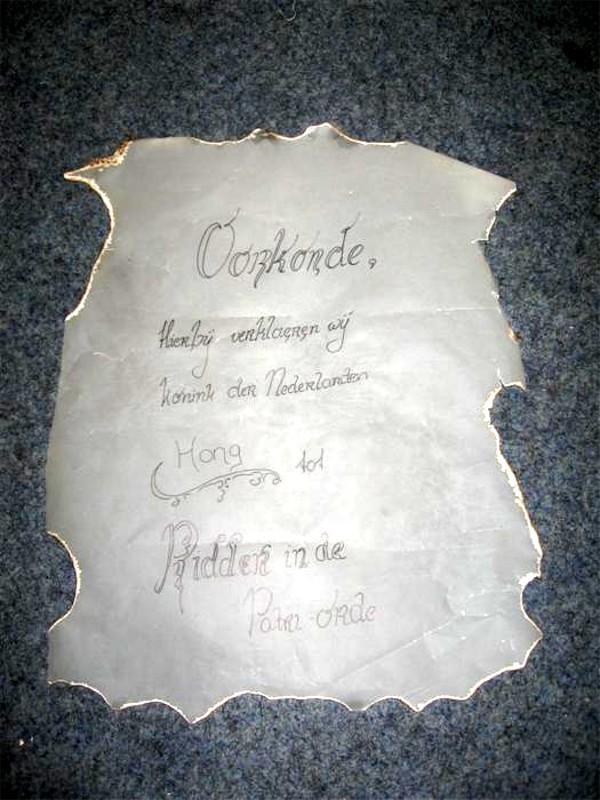 Oorkonde,
Hierbij verklaeren wij
konink der Nederlanden
Hong tot
Ridder in de
Patri-orde